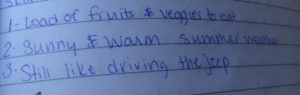 1- Load of fruits & veggies to eat
2- Sunny & Warm summer weather
3- Still like driving the jeep